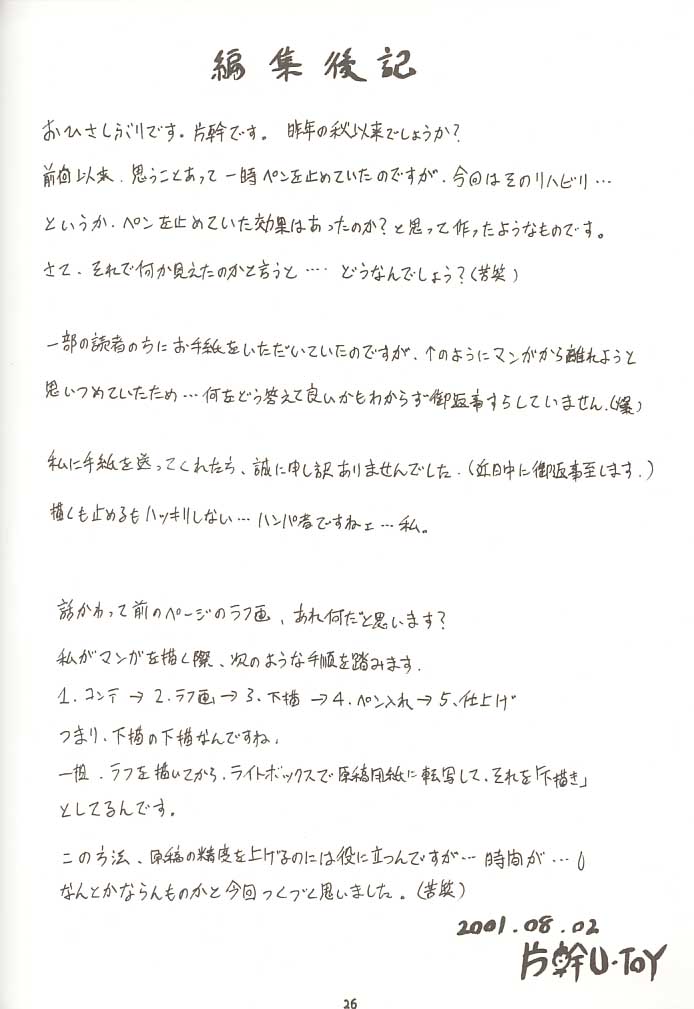 編集後記
おひさしぶりです。片幹です。 昨年の秋以来でしょうか?
前回以来、思うことあって一時ペンを止めていたのですが、今回はそのリハビリ…
というか、ペンを止めていた効果はあったのか?と思って作ったようなものです。
さて、それで何か見えたのかと言うと…. どうなんでしょう?(苦笑)
一部の読者のちにお手紙をいただいていたのですが、↑のようにマンガから離れようと
思いつめていたため…何をどう答えて良いかもわからず御返事すらしていません.(爆)
私に手紙を送ってくれたら、誠に申し訳ありませんでした.(近日中に御返事至します.)
描くも止めるもハッキリしない…ハンパ者ですねェ…私。
話かわって前のページのラフ画、あれ何だと思います?
私がマンガを描く際、次のような手順を踏みます.
1.コンテ→2.ラフ画→3.下描→4.ペン入れ→5.仕上げ
つまり、下描の下描なんですね.
一担、ラフを描いてから、ライトボックスで原稿用紙に転写して、それを「下描き」
としてるんです。
この方法、原稿の精度を上げるのには役に立つんですが…時間が…
なんとかならんものかと今回つくづくと思いました。(苦笑)
2001.08.02
片幹U・ToY
26